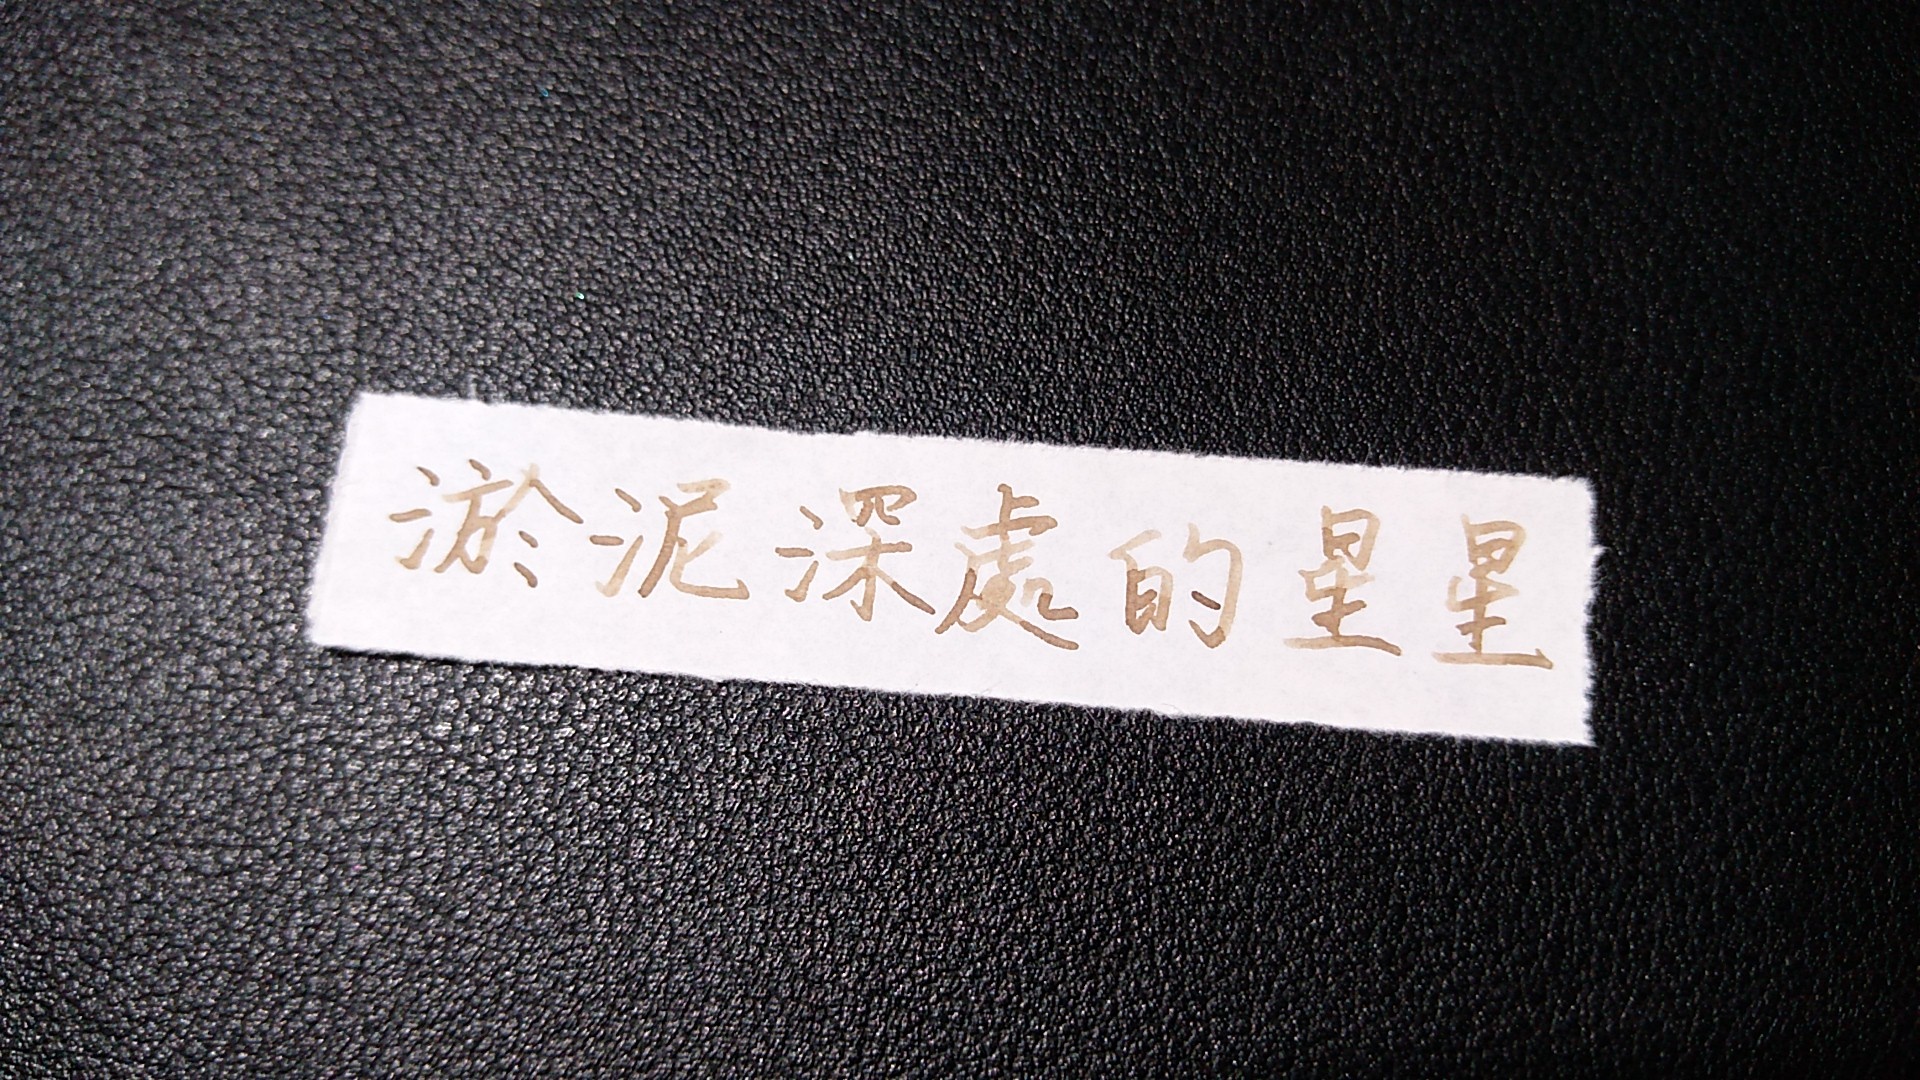 淤泥深處的星星